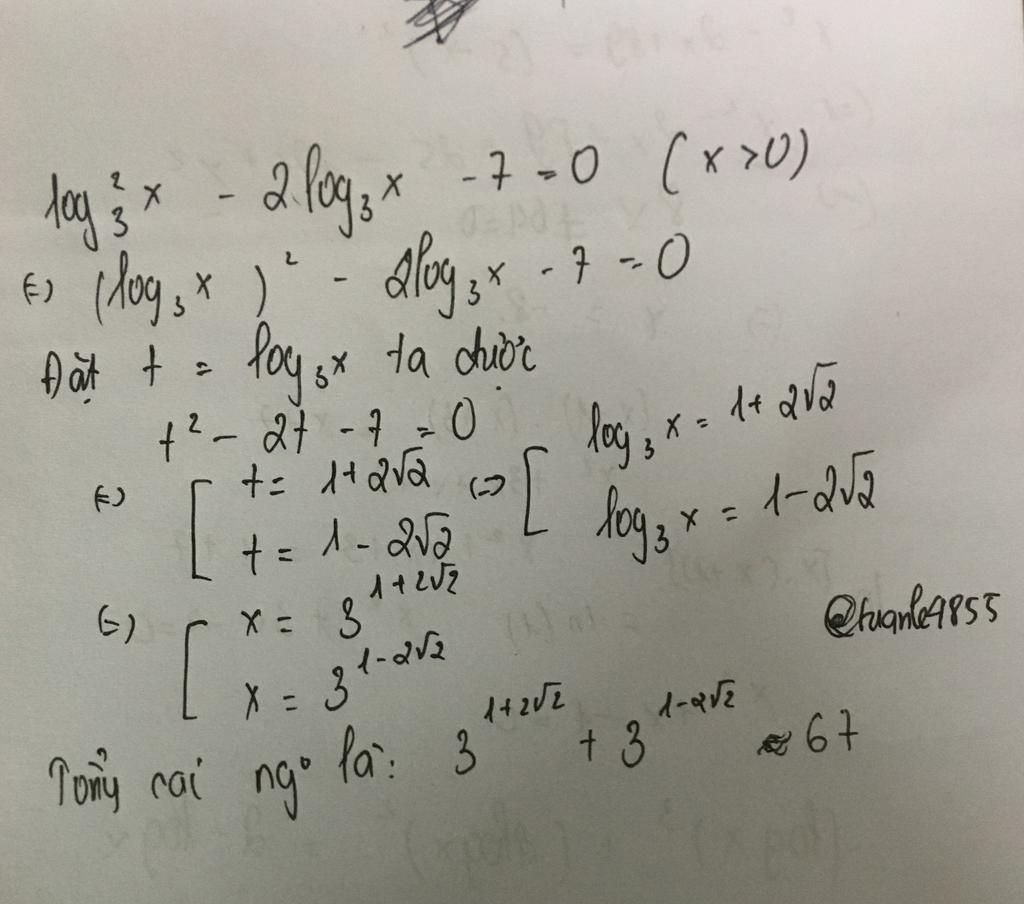 log₃² x - 2.log₃x - 7 = 0 (x > 0)
(=) (log₃x)² - 2log₃x - 7 = 0
Đặt t = log₃x ta được
t² - 2t - 7 = 0
(=) [ t = 1+2√2 (=) [ log₃x = 1+2√2
t = 1-2√2 log₃x = 1-2√2
(=) [ x = 3^{1+2√2}
@tuanle9855
x = 3^{1-2√2}
Tổng các ngº là: 3^{1+2√2} + 3^{1-2√2} ≈ 67